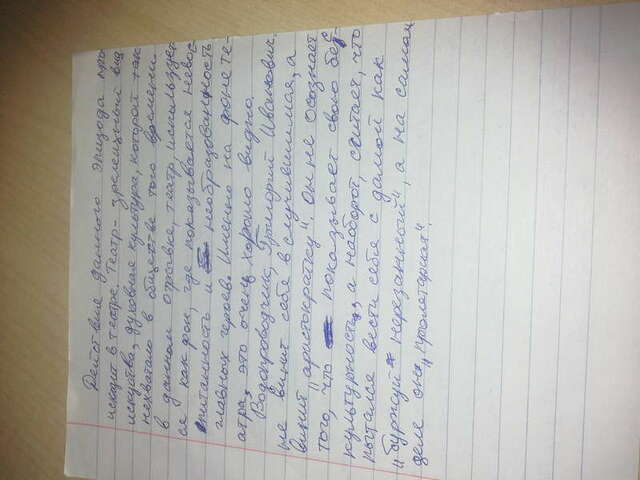 Действие данного эпизода про-
исходит в театре. Театр - зрелищный вид
искуства, духовная культура, которой так
нехватало в обществе того времени.
в данном отрывке, театр использует
ся как фон, где показывается невос-
питанность и необразованность
главных героев. Именно на фоне те-
атра, это очень хорошо видно.
Водопроводчик, Григорий Иванович,
не винит себя в случившимся, а
винит "аристократку". Он не осознаёт
того, что показывает свою бес-
культурность, а наоборот, считает, что
пытался вести себя с дамой как
"буржуй" нерезанный", а на самом
деле он "пролетария".